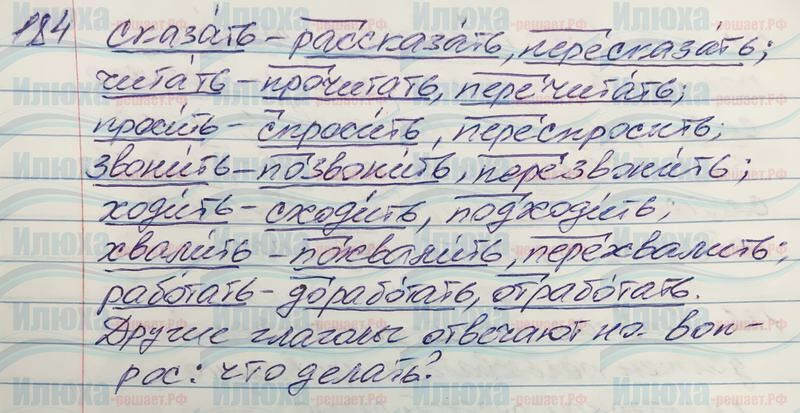 184 сказа́ть – рассказа́ть, пересказа́ть;
чита́ть – прочита́ть, перечита́ть;
проси́ть – спроси́ть, переспроси́ть;
звони́ть – позвони́ть, перезвони́ть;
ходи́ть – сходи́ть, подходи́ть;
хвали́ть – похвали́ть, перехвали́ть;
рабо́тать – дорабо́тать, отрабо́тать.
Другие глаголы отвечают на воп-
рос: что делать?